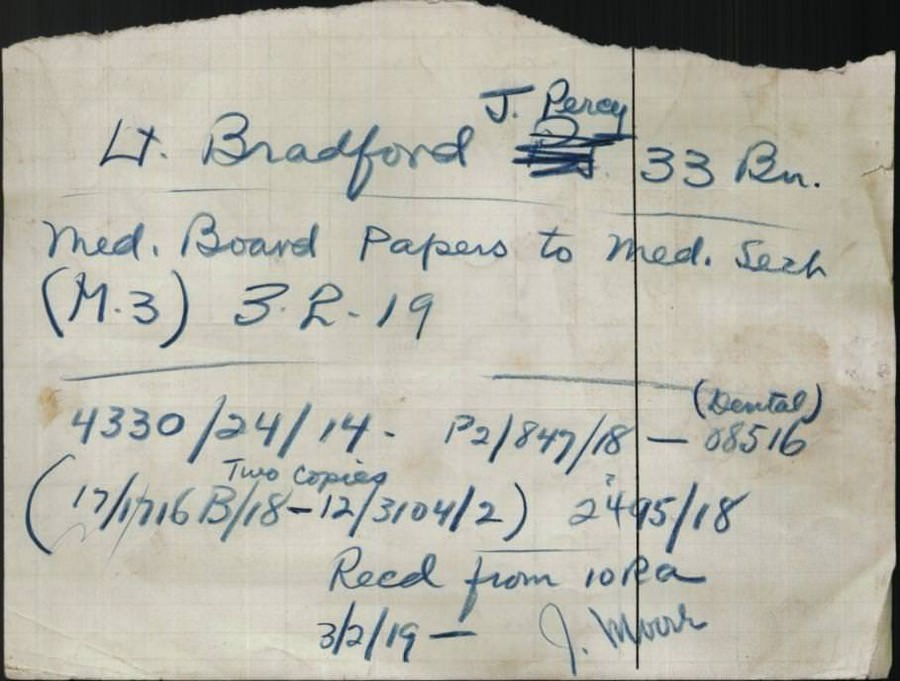 J. Percy
Lt. Bradford 33 Bn.
Med. Board Papers to Med. Sech
(M.3) 3.2.19
(Dental)
4330/24/14. P2/847/18 — 08516
Two copies
(17/1716B/18-12/3104/2) 2495/18
Recd from 10Ra
3/2/19 — J. Moore